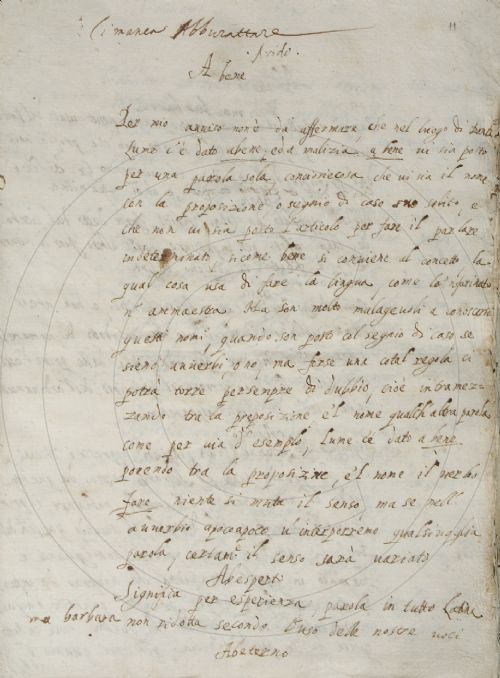 Ci manca Abburattare
11
Arido.
A bene
Per mio avviso non è da affermare, che nel luogo di Dante
Lume c'è dato abene, e da malizia a bene vi sia posto
per una parola sola, che vi sia il nome
con la proposizione o segnio di caso suo solito, e
che non vi sia posto l'articolo per fare il parlare
indeterminato, sicome bene si conviene al conceto la
qual cosa usa di fare la lingua, come lo 'nfarinato
n' ammaestra. Ma son molto malagevoli a conoscere
questi nomi, quando son posti col segnio di caso se
sieno avverbi o no, ma forse una cotal regola ci
potrà torre per sempre di dubbio, cioè intramez-
zando tra la preposizione e'l nome qualch'altra parola
come per via d'esempio, Lume c'è dato a bene,
ponendo tra la proposizine, e'l nome il verbo
fare niente si muta il senso ma se nell'
avverbio apocoapoco v'interporremo qualsivoglia
parola, certam. il senso sarà variato
Abesperto
Significa per esperienza parola in tutto Latina
ma barbara non ridotta secondo l'uso delle nostre voci
Abeterno